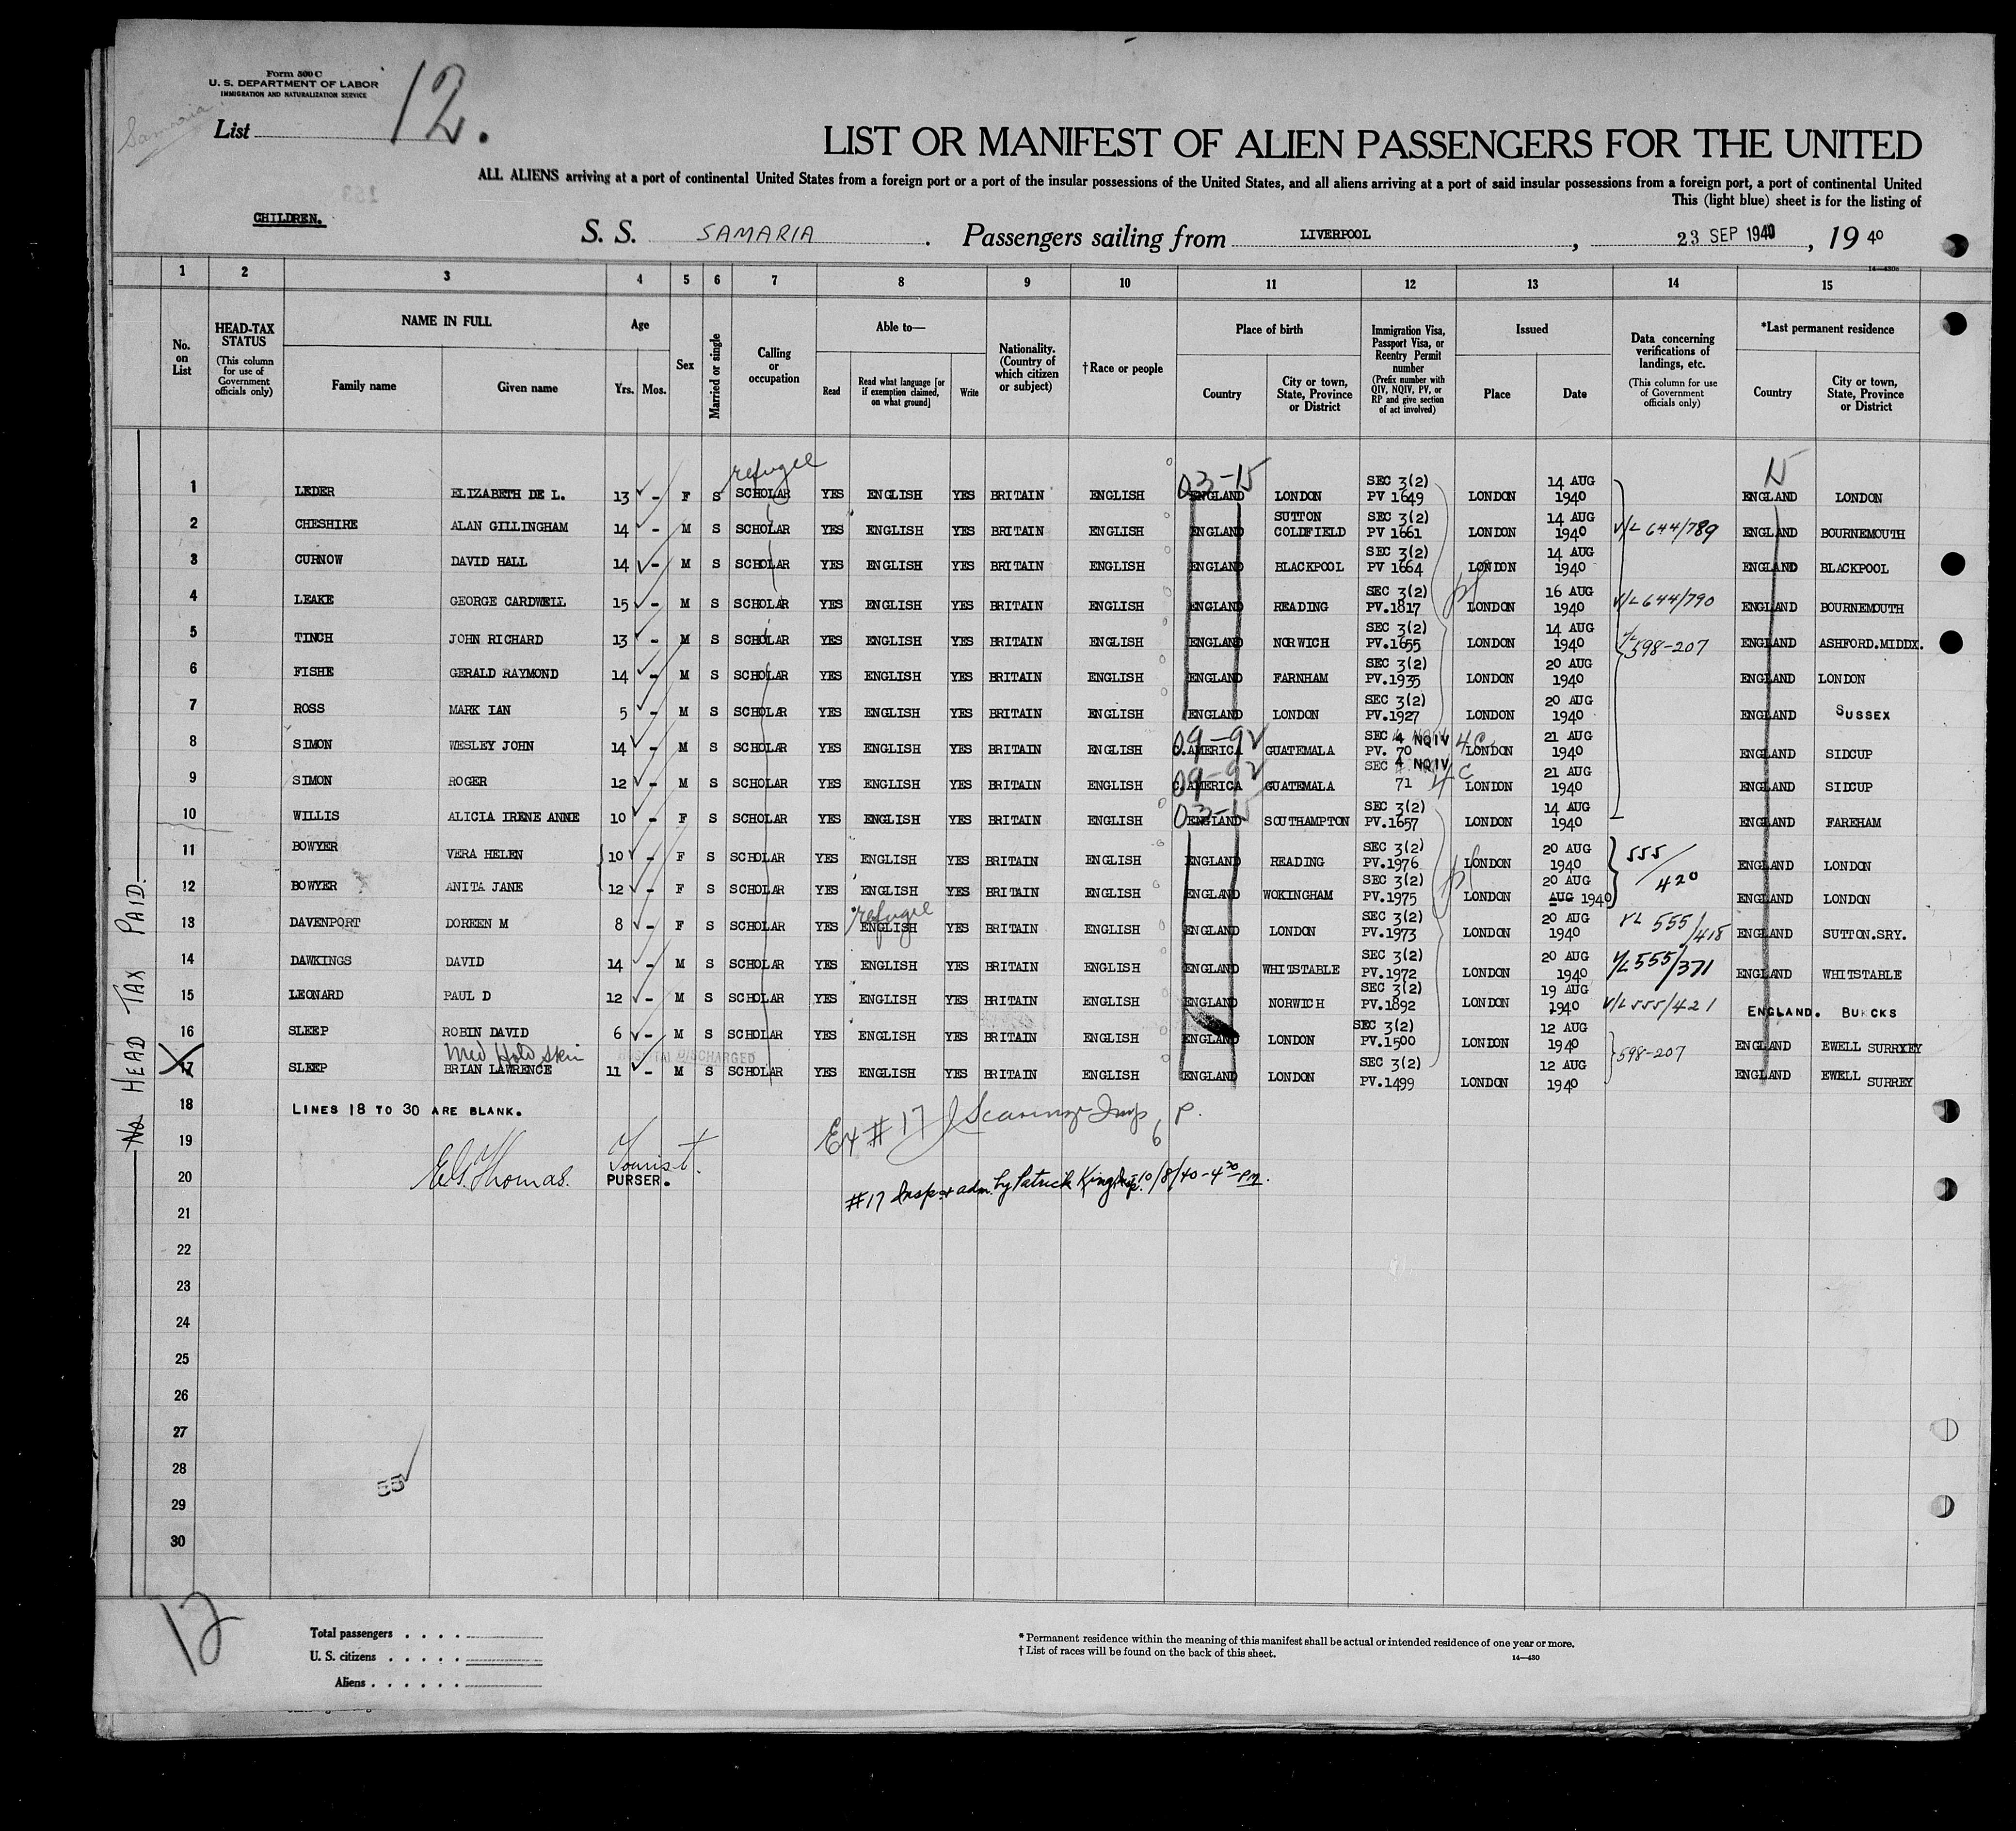 Form 500 C
U. S. DEPARTMENT OF LABOR
IMMIGRATION AND NATURALIZATION SERVICE
Samaria
List 12.
LIST OR MANIFEST OF ALIEN PASSENGERS FOR THE UNITED
ALL ALIENS arriving at a port of continental United States from a foreign port or a port of the insular possessions of the United States, and all aliens arriving at a port of said insular possessions from a foreign port, a port of continental United
This (light blue) sheet is for the listing of
CHILDREN.
S. S. SAMARIA. Passengers sailing from LIVERPOOL, 23 SEP 1940, 19 40
1 2 3 4 5 6 7 8 9 10 11 12 13 14 15
No. on List
HEAD-TAX STATUS (This column for use of Government officials only)
NAME IN FULL
Family name
Given name
Age
Yrs. Mos.
Sex
Married or single
Calling or occupation
Able to—
Read
Read what language [or if exemption claimed, on what ground]
Write
Nationality. (Country of which citizen or subject)
†Race or people
Place of birth
Country
City or town, State, Province or District
Immigration Visa, Passport Visa, or Reentry Permit number (Prefix number with QIV, NQIV, PV, or RP and give section of act involved)
Issued
Place
Date
Data concerning verifications of landings, etc. (This column for use of Government officials only)
*Last permanent residence
Country
City or town, State, Province or District
refugee 03-15
1 LEDER ELIZABETH DE L. 13 - F S SCHOLAR YES ENGLISH YES BRITAIN ENGLISH ENGLAND LONDON SEC 3(2) PV 1649 LONDON 14 AUG 1940 ENGLAND LONDON
2 CHESHIRE ALAN GILLINGHAM 14 - M S SCHOLAR YES ENGLISH YES BRITAIN ENGLISH ENGLAND SUTTON COLDFIELD SEC 3(2) PV 1661 LONDON 14 AUG 1940 V/L 644/789 ENGLAND BOURNEMOUTH
3 CURNOW DAVID HALL 14 - M S SCHOLAR YES ENGLISH YES BRITAIN ENGLISH ENGLAND BLACKPOOL SEC 3(2) PV 1664 LONDON 14 AUG 1940 ENGLAND BLACKPOOL
4 LEAKE GEORGE CARDWELL 15 - M S SCHOLAR YES ENGLISH YES BRITAIN ENGLISH ENGLAND READING SEC 3(2) PV.1817 LONDON 16 AUG 1940 V/L 644/790 ENGLAND BOURNEMOUTH
5 TINCH JOHN RICHARD 13 - M S SCHOLAR YES ENGLISH YES BRITAIN ENGLISH ENGLAND NORWICH SEC 3(2) PV.1655 LONDON 14 AUG 1940 V/L 598-207 ENGLAND ASHFORD.MIDDX.
6 FISHE GERALD RAYMOND 14 - M S SCHOLAR YES ENGLISH YES BRITAIN ENGLISH ENGLAND FARNHAM SEC 3(2) PV.1935 LONDON 20 AUG 1940 ENGLAND LONDON
7 ROSS MARK IAN 5 - M S SCHOLAR YES ENGLISH YES BRITAIN ENGLISH ENGLAND LONDON SEC 3(2) PV.1927 LONDON 20 AUG 1940 ENGLAND SUSSEX
8 SIMON WESLEY JOHN 14 - M S SCHOLAR YES ENGLISH YES BRITAIN ENGLISH 09-92 C.AMERICA GUATEMALA SEC 4 NQIV PV. 70 4C LONDON 21 AUG 1940 ENGLAND SIDCUP
9 SIMON ROGER 12 - M S SCHOLAR YES ENGLISH YES BRITAIN ENGLISH 09-92 C.AMERICA GUATEMALA SEC 4 NQIV 71 4C LONDON 21 AUG 1940 ENGLAND SIDCUP
10 WILLIS ALICIA IRENE ANNE 10 - F S SCHOLAR YES ENGLISH YES BRITAIN ENGLISH 03-15 ENGLAND SOUTHAMPTON SEC 3(2) PV.1657 LONDON 14 AUG 1940 ENGLAND FAREHAM
11 BOWYER VERA HELEN 10 - F S SCHOLAR YES ENGLISH YES BRITAIN ENGLISH ENGLAND READING SEC 3(2) PV.1976 LONDON 20 AUG 1940 555/420 ENGLAND LONDON
12 BOWYER ANITA JANE 12 - F S SCHOLAR YES ENGLISH YES BRITAIN ENGLISH ENGLAND WOKINGHAM SEC 3(2) PV.1975 LONDON 20 AUG AUG 1940 ENGLAND LONDON
refugee
13 DAVENPORT DOREEN M 8 - F S SCHOLAR YES ENGLISH YES BRITAIN ENGLISH ENGLAND LONDON SEC 3(2) PV.1973 LONDON 20 AUG 1940 VL 555/418 ENGLAND SUTTON.SRY.
14 DAWKINGS DAVID 14 - M S SCHOLAR YES ENGLISH YES BRITAIN ENGLISH ENGLAND WHITSTABLE SEC 3(2) PV.1972 LONDON 20 AUG 1940 V/L 555/371 ENGLAND WHITSTABLE
15 LEONARD PAUL D 12 - M S SCHOLAR YES ENGLISH YES BRITAIN ENGLISH ENGLAND NORWICH SEC 3(2) PV.1892 LONDON 19 AUG 1940 V/L 555/421 ENGLAND. BUCKS
16 SLEEP ROBIN DAVID 6 - M S SCHOLAR YES ENGLISH YES BRITAIN ENGLISH ENGLAND LONDON SEC 3(2) PV.1500 LONDON 12 AUG 1940 598-207 ENGLAND EWELL SURREY
Med Hold Skin HOSPITAL DISCHARGED
17 SLEEP BRIAN LAWRENCE 11 - M S SCHOLAR YES ENGLISH YES BRITAIN ENGLISH ENGLAND LONDON SEC 3(2) PV.1499 LONDON 12 AUG 1940 ENGLAND EWELL SURREY
18 LINES 18 TO 30 ARE BLANK.
Ex # 17 Insp
19
E.G. Thomas. Tourist. PURSER.
20
#17 Insp & adm. by Patrick King Insp. 10/8/40 - 4 30 PM.
21
22
23
24
25
26
27
28
55
29
30
No HEAD TAX PAID.
12
Total passengers . . . .
U. S. citizens . . . . .
Aliens . . . . . .
* Permanent residence within the meaning of this manifest shall be actual or intended residence of one year or more.
† List of races will be found on the back of this sheet.
14—430